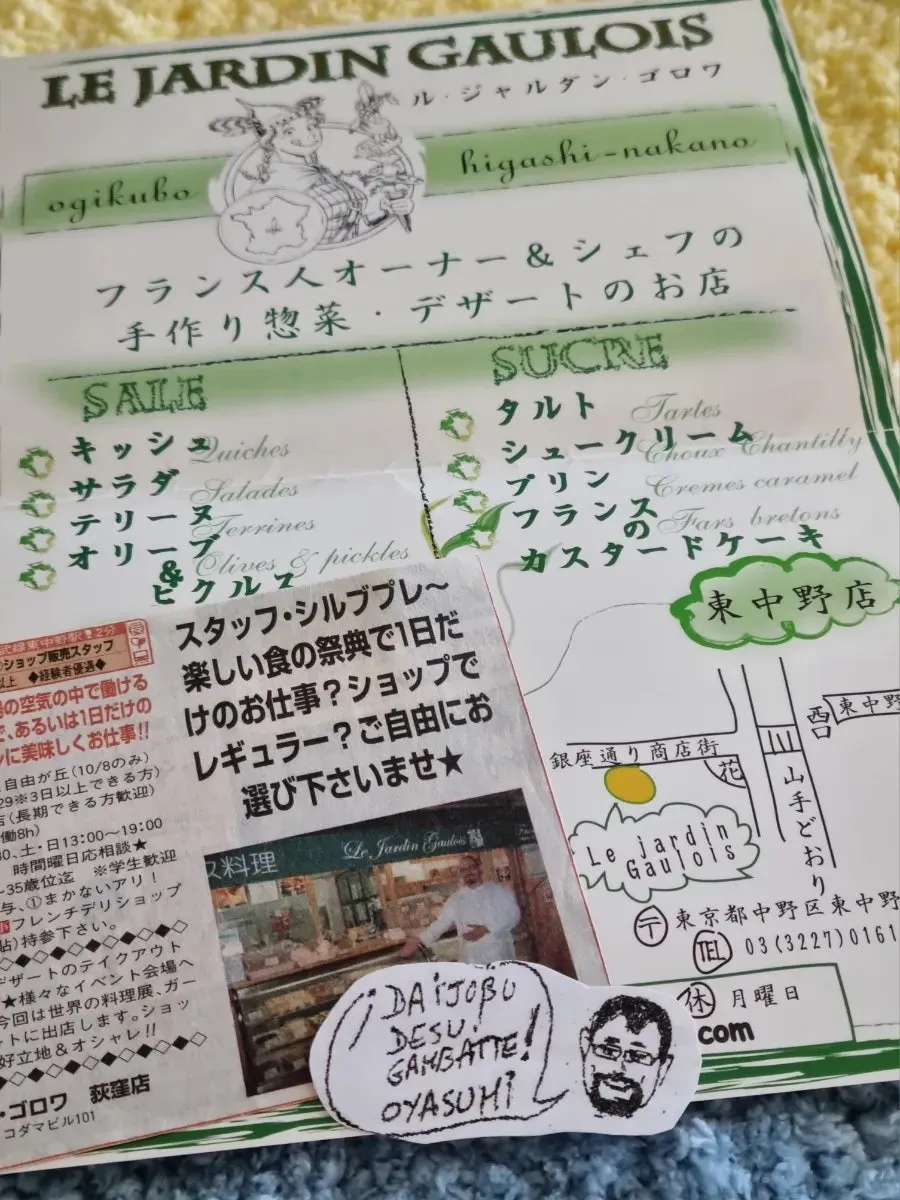 LE JARDIN GAULOIS
ル・ジャルダン・ゴロワ
ogikubo
higashi-nakano
フランス人オーナー&シェフの
手作り惣菜・デザートのお店
SALE
キッシュ Quiches
サラダ Salades
テリーヌ Terrines
オリーブ Olives & pickles
&
ピクルス
SUCRE
タルト Tartes
シュークリーム Choux Chantilly
プリン Cremes caramel
フランス Fars bretons
の
カスタードケーキ
東中野店
東中野
西口
銀座通り商店街
花
山手どおり
Le jardin
Gaulois
〒 東京都中野区東中野
TEL 03(3227)0161
休 月曜日
com
武線東中野駅 2分
ショップ販売スタッフ
以上 ◆経験者優遇◆
の空気の中で働ける
で、あるいは1日だけの
に美味しくお仕事!!
自由が丘(10/8のみ)
29※3日以上できる方)
店(長期できる方歓迎)
働8h)
30、土・日13:00〜19:00
時間曜日応相談★
〜35歳位迄 ※学生歓迎
与、①まかないアリ!
フレンチデリショップ
貼)持参下さい。
デザートのテイクアウト
★様々なイベント会場へ
今回は世界の料理展、ガー
ットに出店します。ショッ
好立地&オシャレ!!
・ゴロワ 荻窪店
コダマビル101
スタッフ・シルブプレ〜
楽しい食の祭典で1日だ
けのお仕事?ショップで
レギュラー?ご自由にお
選び下さいませ★
ス料理
Le Jardin Gaulois
¡DAIJOBU
DESU!
GAMBATTE!
OYASUMI